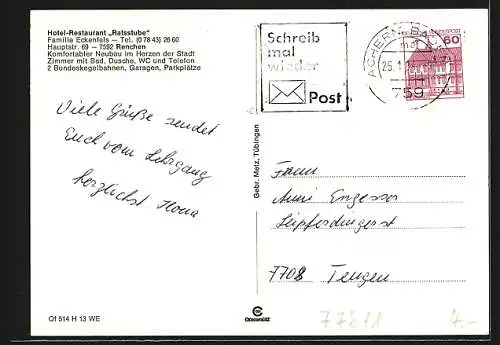 Hotel-Restaurant „Ratsstube“
Familie Eckenfels — Tel. (0 78 43) 26 60
Hauptstr. 69 - 7592 Renchen
Komfortabler Neubau im Herzen der Stadt
Zimmer mit Bad, Dusche, WC und Telefon
2 Bundeskegelbahnen, Garagen, Parkplätze
Viele Grüße sendet
Euch vom Lehrgang
herzlichst Ilona
Gebr. Metz, Tübingen
Schreib
mal
wieder
Post
ACHERN, BADEN
759
60
Fam.
Leipferdingerst
7708 Tengen
Of 514 H 13 WE
77871
4.-